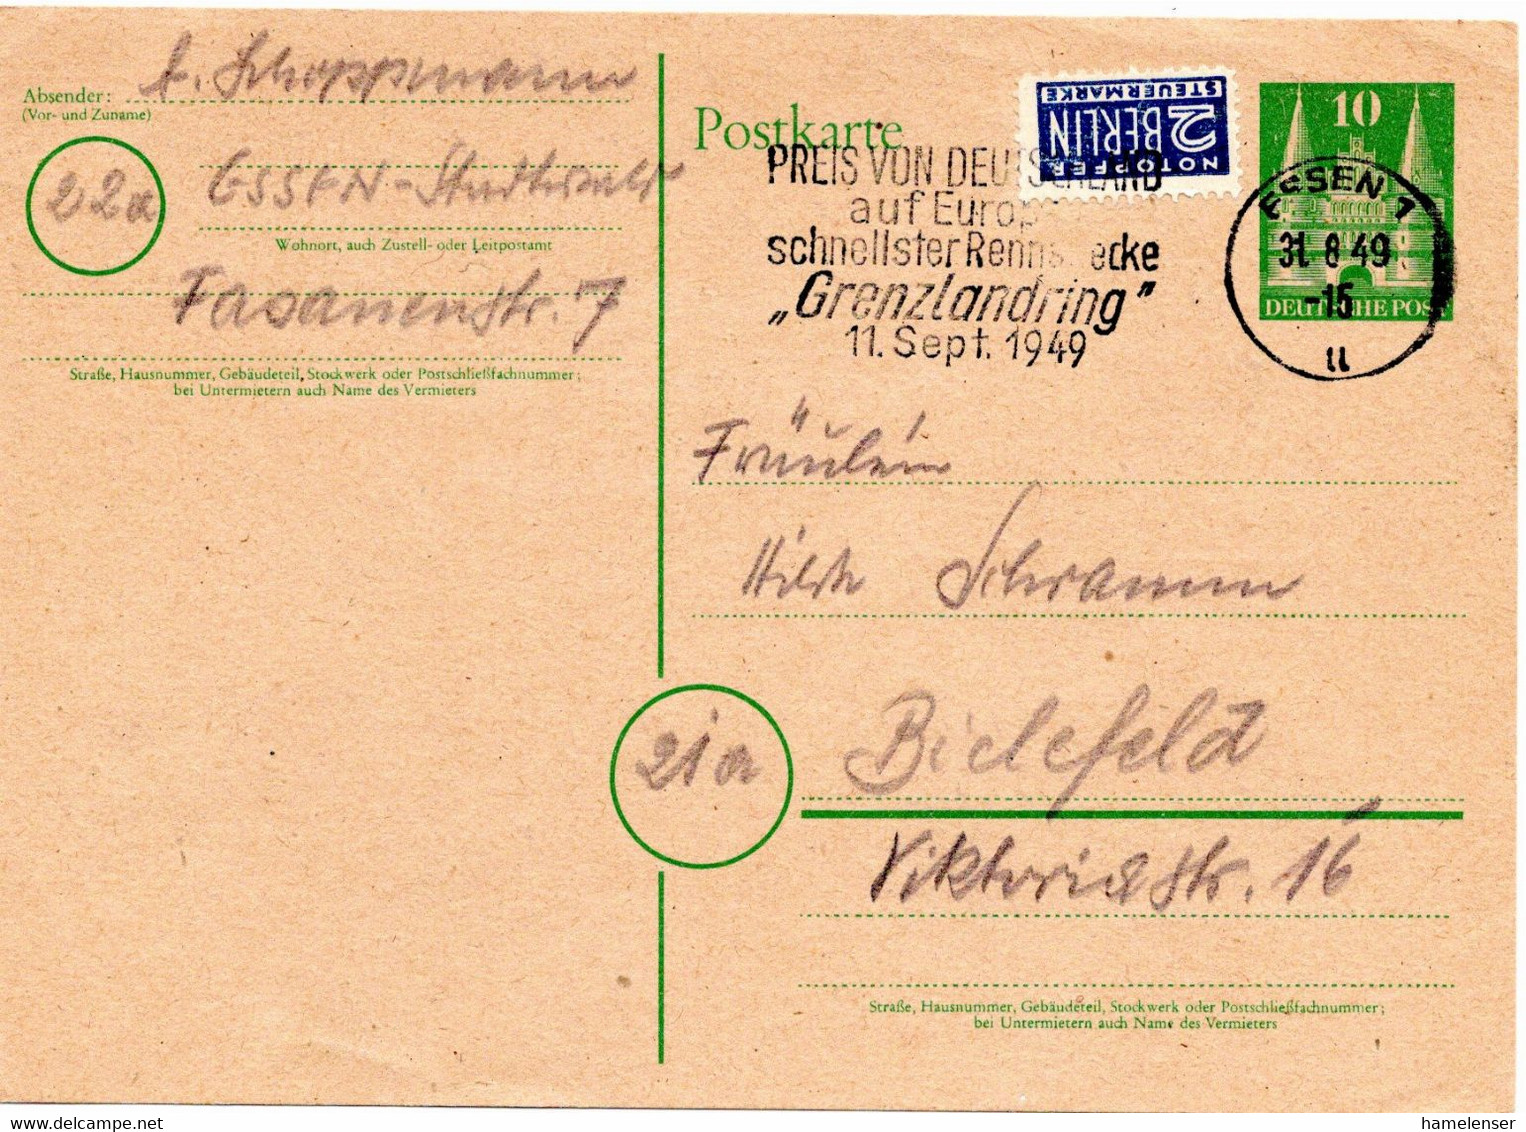 Absender: A. Schoppmann
(Vor- und Zuname)
22a
ESSEN-Stadtwald
Wohnort, auch Zustell- oder Leitpostamt
Fasanenstr. 7
Straße, Hausnummer, Gebäudeteil, Stockwerk oder Postschließfachnummer;
bei Untermietern auch Name des Vermieters
Postkarte
NOTOPFER
2 BERLIN
STEUERMARKE
10
DEUTSCHE POST
PREIS VON DEUTSCHLAND
auf Europas
schnellster Rennstrecke
„Grenzlandring"
11. Sept. 1949
ESSEN 1
31.8.49
-15
u
Fräulein
Hilde Schramm
21a
Bielefeld
Viktoriastr. 16
Straße, Hausnummer, Gebäudeteil, Stockwerk oder Postschließfachnummer;
bei Untermietern auch Name des Vermieters
www.delcampe.net
hamelenser